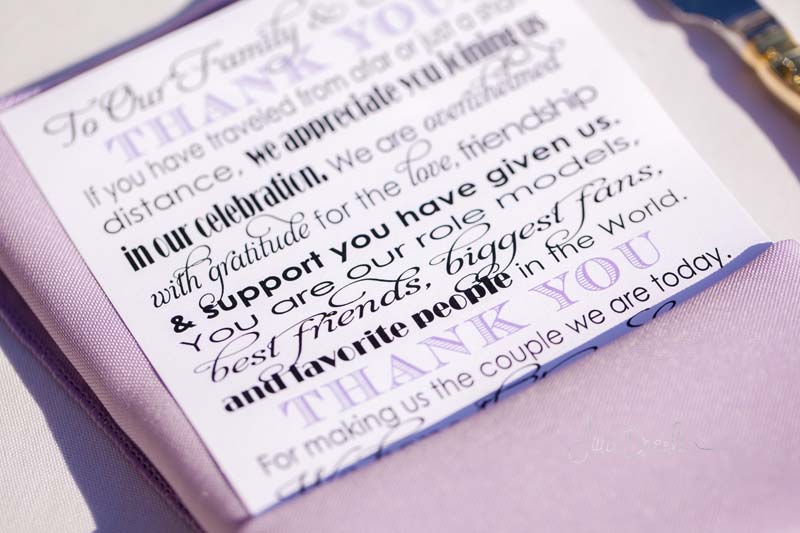 To Our Family &
THANK YOU
If you have traveled from afar or just a short
distance, we appreciate you joining us
in our celebration. We are overwhelmed
with gratitude for the love, friendship
& support you have given us.
You are our role models,
best friends, biggest fans,
and favorite people in the world.
THANK YOU
For making us the couple we are today.